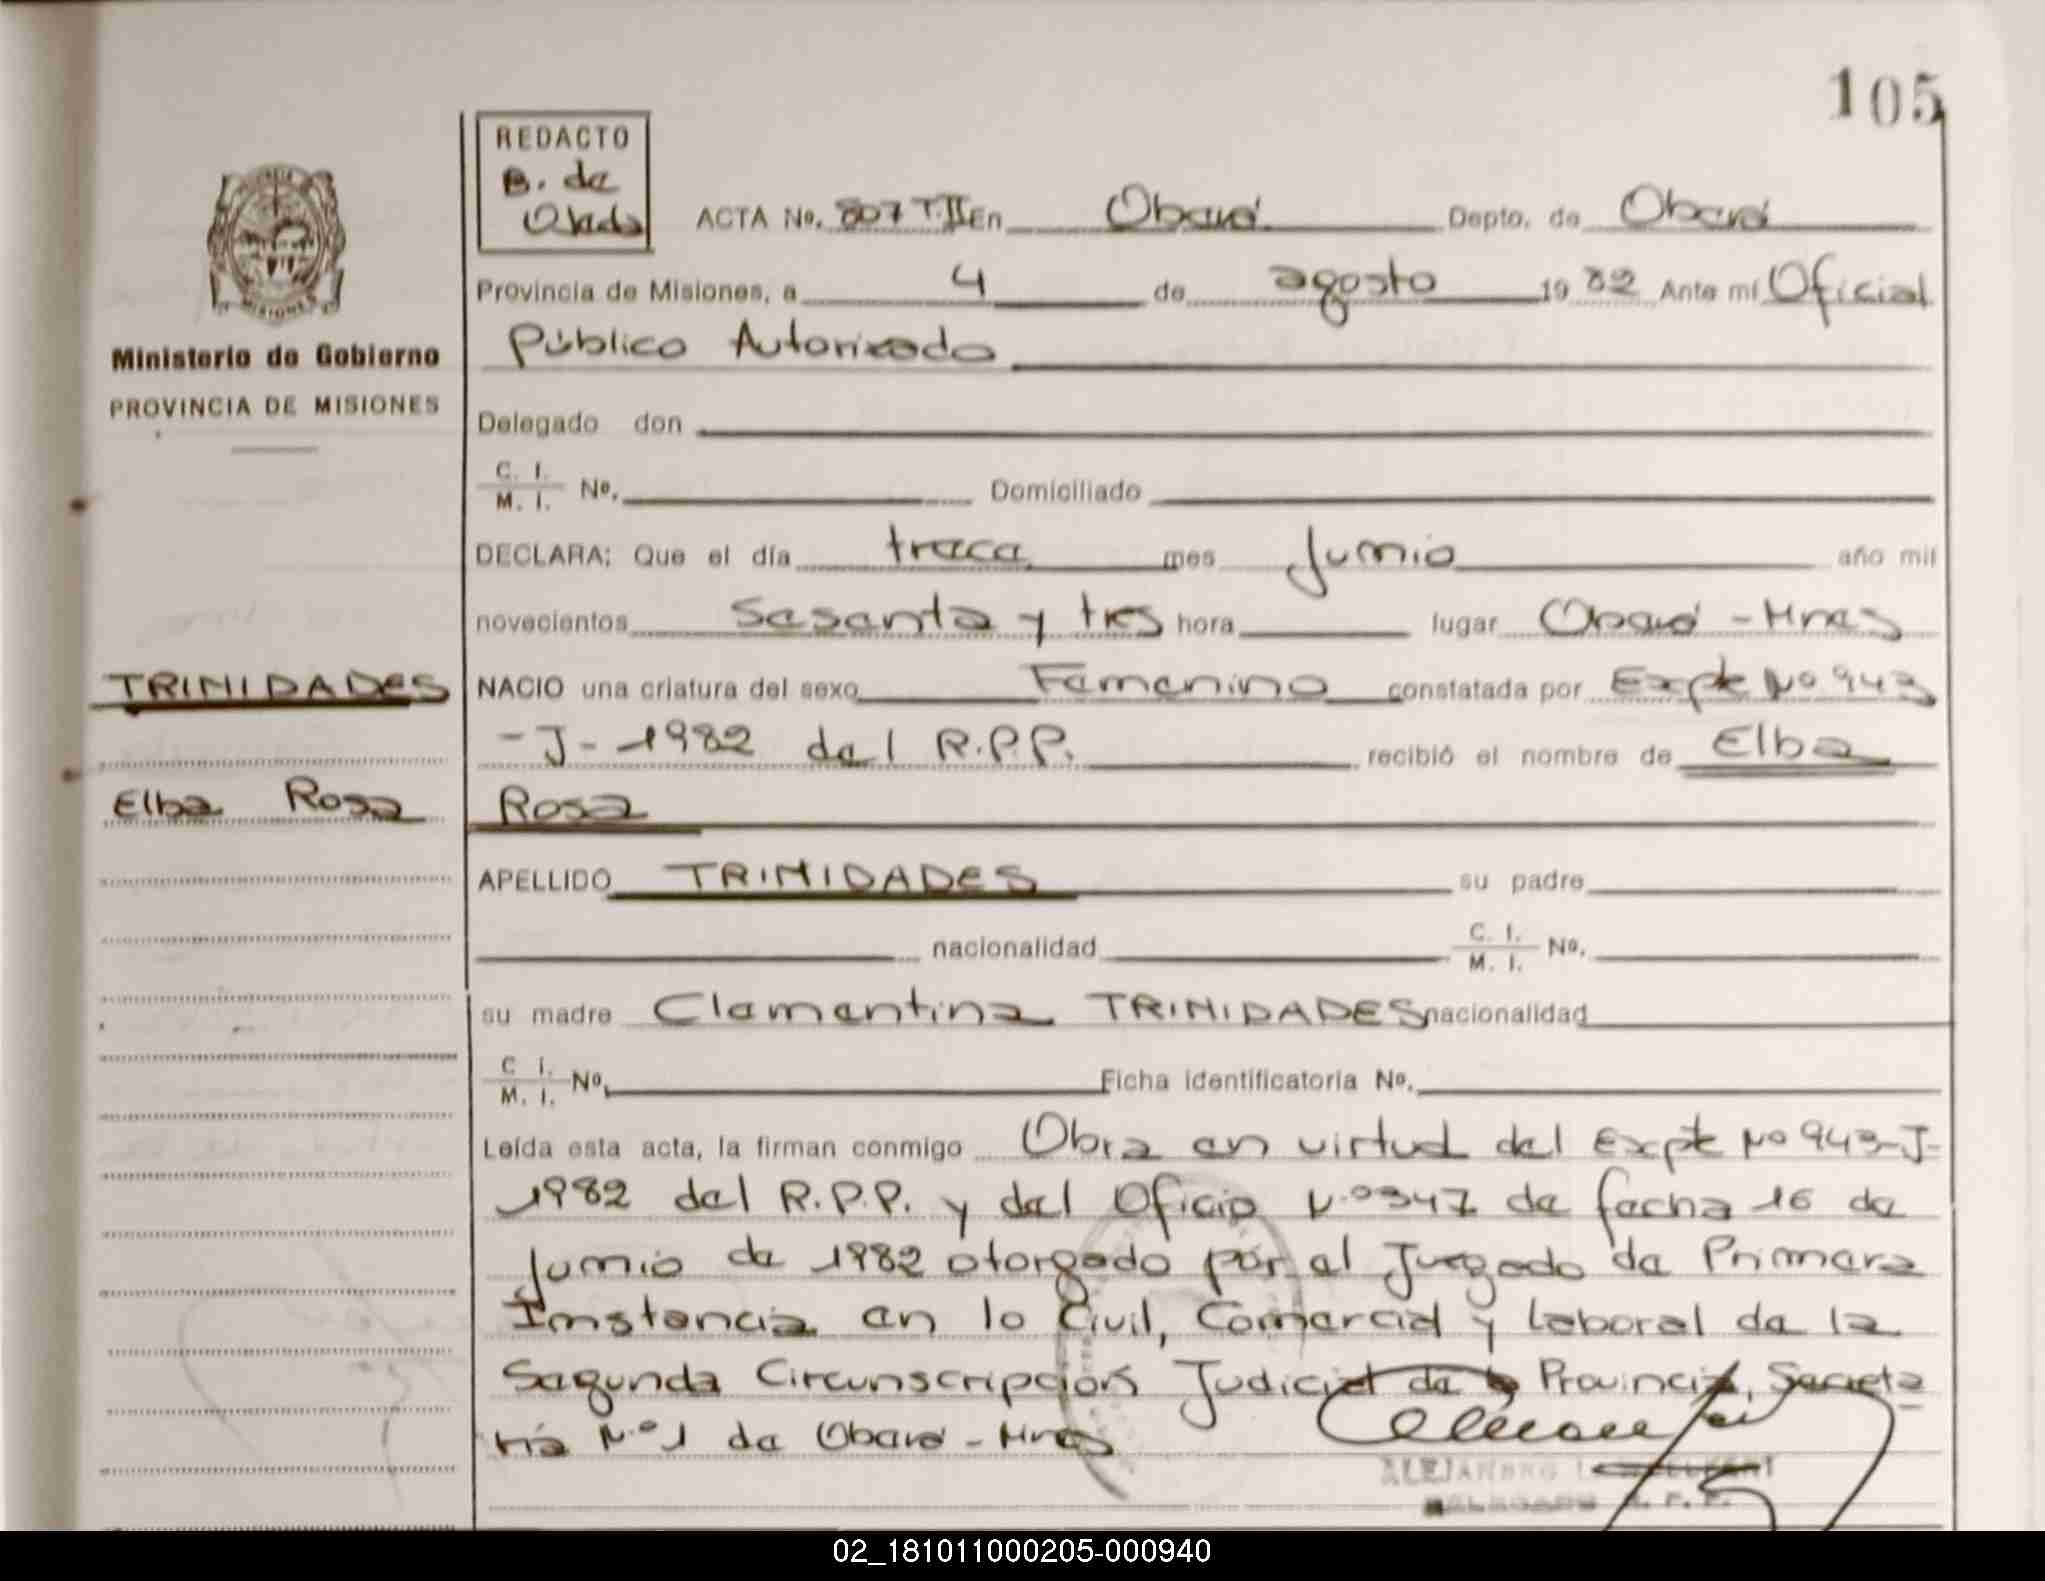 105
REDACTO
B. de
Olado
ACTA No. 807 T.II En Oberá Depto. de Oberá
Provincia de Misiones, a 4 de agosto 1982 Ante mí Oficial
Público Autorizado
MISIONES
Ministerio de Gobierno
PROVINCIA DE MISIONES
Delegado don
C. I.
M. I. Nº. Domiciliado
DECLARA: Que el día trece mes Junio año mil
novecientos sesenta y tres hora lugar Oberá - Mnes
TRINIDADES
NACIO una criatura del sexo Femenino constatada por Expte Nº 943
- J - 1982 del R.P.P. recibió el nombre de Elba
Elba Rosa
Rosa
APELLIDO TRINIDADES su padre
nacionalidad C. I.
M. I. Nº.
su madre Clementina TRINIDADES nacionalidad
C I.
M. I. Nº. Ficha identificatoria Nº.
Leída esta acta, la firman conmigo Obra en virtud del Expte Nº 943-J-
1982 del R.P.P. y del Oficio Nº 347 de fecha 16 de
Junio de 1982 otorgado por el Juzgado de Primera
Instancia en lo Civil, Comercial y Laboral de la
Segunda Circunscripción Judicial de la Provincia, Secreta
ría Nº 1 de Oberá - Mnes
ALEJANDRO
DELEGADO R. P. P.
02_181011000205-000940